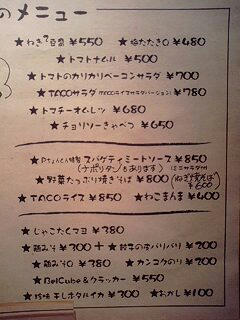 のメニュー
★ねぎ豆腐 ¥550 ★梅たたき ¥480
★トマトナムル ¥500
★トマトのカリカリベーコンサラダ ¥700
★TACOサラダ (TACOライスサラダバージョン) ¥780
★トマチーオムレツ ¥680
★チョリソーきゃべつ ¥650
特製 スパゲティミートソース ¥850
(ナポリタンもあります) (ミニサラダ付)
★野菜たっぷり焼きそば ¥800 (ねぎ焼そば ¥600)
★TACOライス ¥850 ★ねこまんま ¥400
★じゃこたくマヨ ¥380
★鶏みそ ¥300 ★餃子の皮パリパリ ¥200
★鶏みそ ¥380 ★カンコクのり ¥200
★BelCube&クラッカー ¥550
★珍味 干しホタルイカ ¥300 ★おかし ¥100